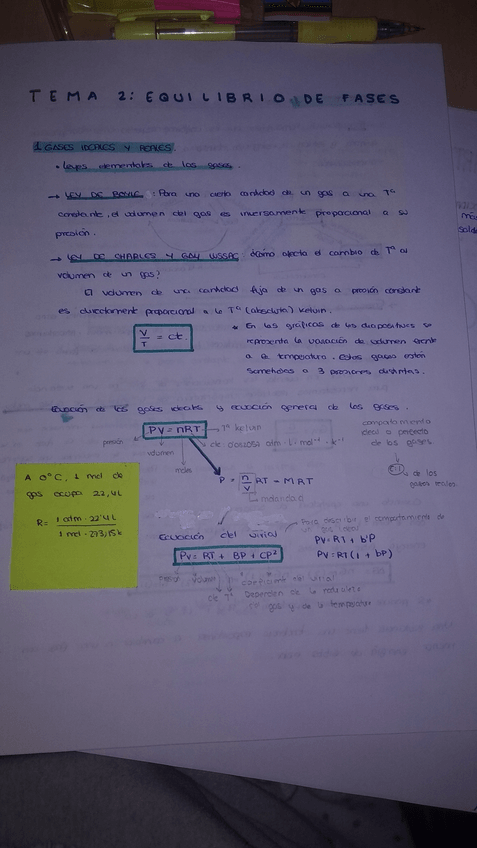 TEMA 2: EQUILIBRIO DE FASES
1. GASES IDEALES Y REALES.
• Leyes elementales de los gases.
→ LEY DE BOYLE: Para una cierta cantidad de un gas a una Tª
constante, el volumen del gas es inversamente proporcional a su
presión.
→ LEY DE CHARLES Y GAY LUSSAC: ¿Cómo afecta el cambio de Tª al
volumen de un gas?
El volumen de una cantidad fija de un gas a presión constante
es directamente proporcional a la Tª (absoluta) kelvin.
V/T = ct.
* En las gráficas de las diapositivas se
representa la variación de volumen frente
a la temperatura. Estos gases están
sometidos a 3 presiones distintas.
Ecuación de los gases ideales y ecuación general de los gases.
PV = nRT → Tª kelvin
presión
volumen
moles
cte. 0,082 atm · L · mol⁻¹ · k⁻¹
comportamiento
ideal o perfecto
de los gases
de los
gases reales.
P = n/V RT = MRT
molaridad
A 0°C, 1 mol de
gas ocupa 22,4L
R = 1 atm · 22'4L / 1 mol · 273,15k
Ecuación del virial
Para describir el comportamiento de
PV = RT + BP + CP²
PV = RT + b'P
PV = RT(1 + bP)
Presión volumen
cte Tª
coeficiente del virial
Dependen de la naturaleza
gas y de la temperatura